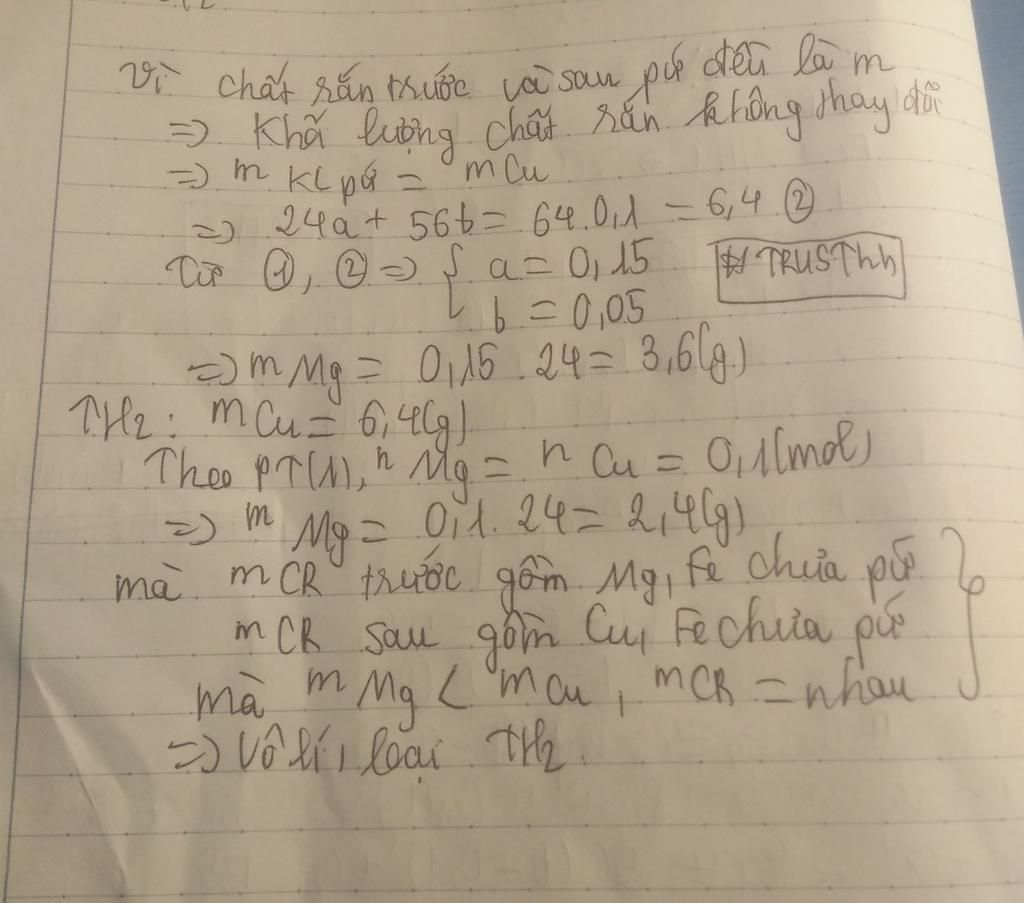 Vì chất rắn trước và sau pứ đều là m
=> Khố lượng chất rắn không thay đổi
=> m KL pứ = mCu
=> 24a + 56b = 64.0,1 = 6,4 ②
Từ ①, ② => { a = 0,15
b = 0,05
# TRUSThh
=> m Mg = 0,15 . 24 = 3,6(g)
TH2: m Cu = 6,4(g)
Theo PT(1), n Mg = n Cu = 0,1(mol)
=> m Mg = 0,1. 24 = 2,4(g)
mà mCR trước gồm Mg, Fe chưa pứ
mCR sau gồm Cu, Fe chưa pứ
mà m Mg < m Cu, mCR = nhau
=> Vô lí, loại TH2.